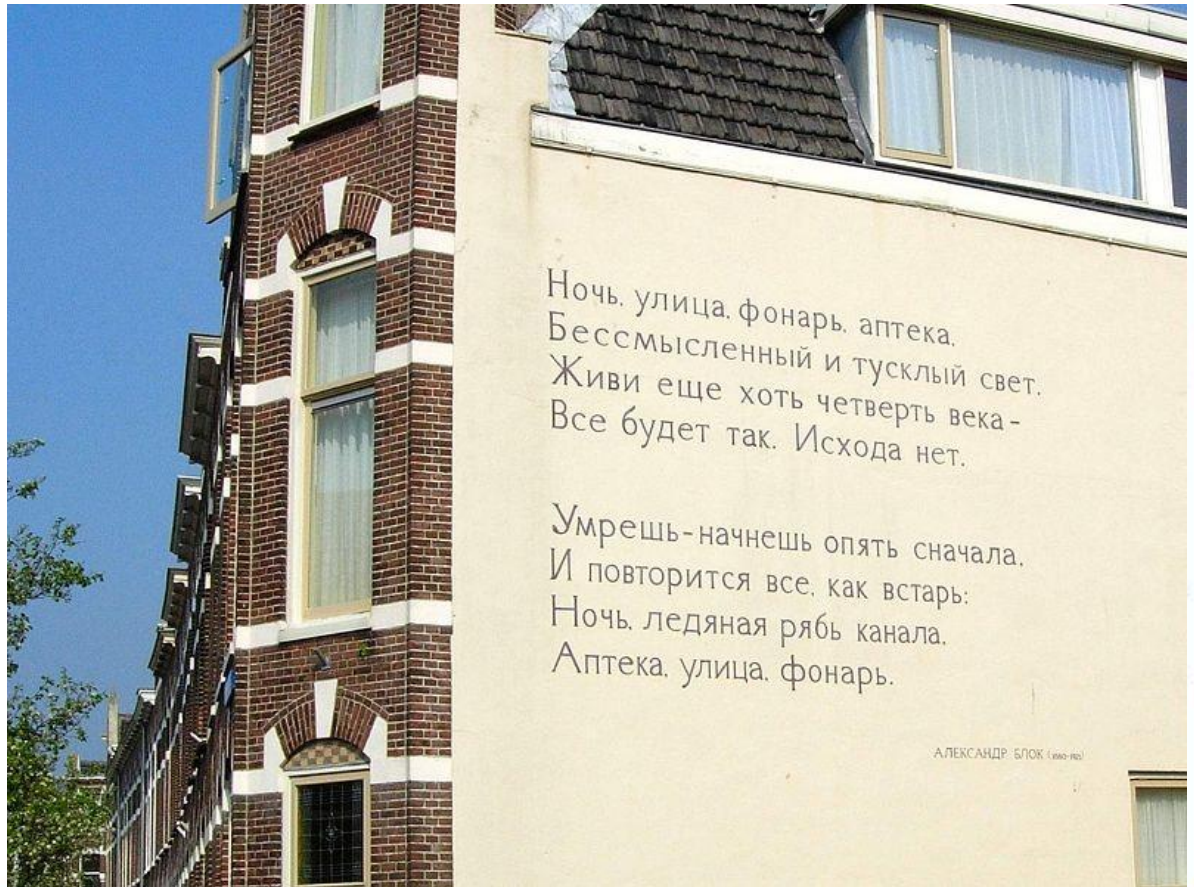 Ночь, улица, фонарь, аптека,
Бессмысленный и тусклый свет.
Живи еще хоть четверть века -
Все будет так. Исхода нет.
Умрешь - начнешь опять сначала,
И повторится все, как встарь:
Ночь, ледяная рябь канала,
Аптека, улица, фонарь.
АЛЕКСАНДР БЛОК (1880-1921)